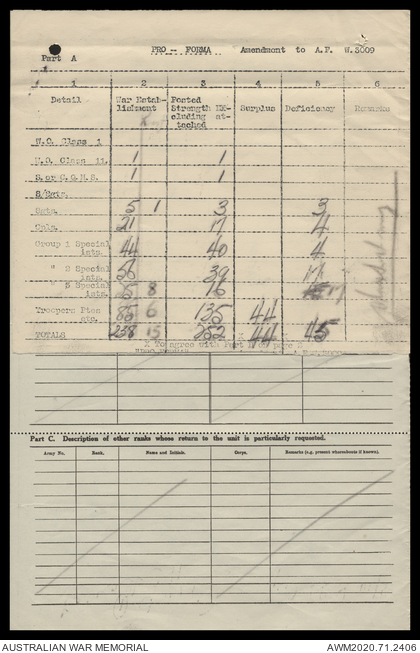 PRO -- FORMA Amendment to A.F. W.3009
Part A
1 2 3 4 5 6
Detail War Estab- Posted Surplus Deficiency Remarks
lishment Strength EX-
cluding at-
tached
W.O. Class i
W.O. Class ii. 1 1
S. or C.Q.M.S. 1 1
S/Sgts.
Sgts. 5 1 3 3
Cpls. 21 17 4
Group 1 Special 44 40 4
ists.
" 2 Special 56 39 17
ists.
" 3 Special 8 16 17
ists.
Troopers Ptes 85 6 135 44
etc.
TOTALS 238 15 252 44 45
X To agree with Part
Part C. Description of other ranks whose return to the unit is particularly requested.
Army No. Rank. Name and Initials. Corps. Remarks (e.g. present whereabouts if known).
AUSTRALIAN WAR MEMORIAL AWM2020.71.2406